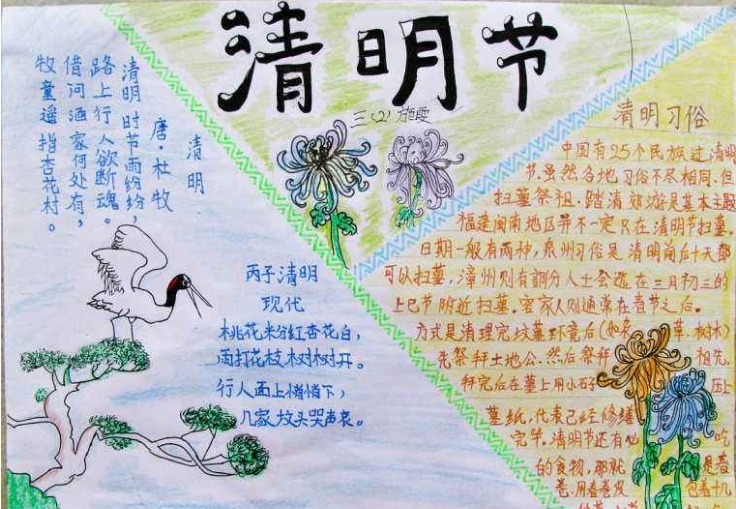 清明节
三(2) 施雯
清明
唐·杜牧
清明时节雨纷纷，
路上行人欲断魂。
借问酒家何处有，
牧童遥指杏花村。
丙子清明
现代
桃花米分红杏花白，
雨打花枝树树开。
行人面上悄悄下，
几家坟头哭声哀。
清明习俗
中国有25个民族过清明
节.虽然各地习俗不尽相同.但
扫墓祭祖.踏清郊游是基本主题
福建闽南地区并不一定只在清明节扫墓。
日期一般有两种，泉州习俗是清明前后十天都
可以扫墓，漳州则有部分人士会选在三月初三的
上巳节附近扫墓。客家人则通常在春节之后。
方式是清理完坟墓环境后(如 草.树木)
先祭拜土地公.然后祭拜 祖先.
拜完后在墓上用小石子 压上
墓纸，代表已经修缮
完毕.清明节还有必 吃
的食物，那就 是春
卷.用春卷皮 包着十几